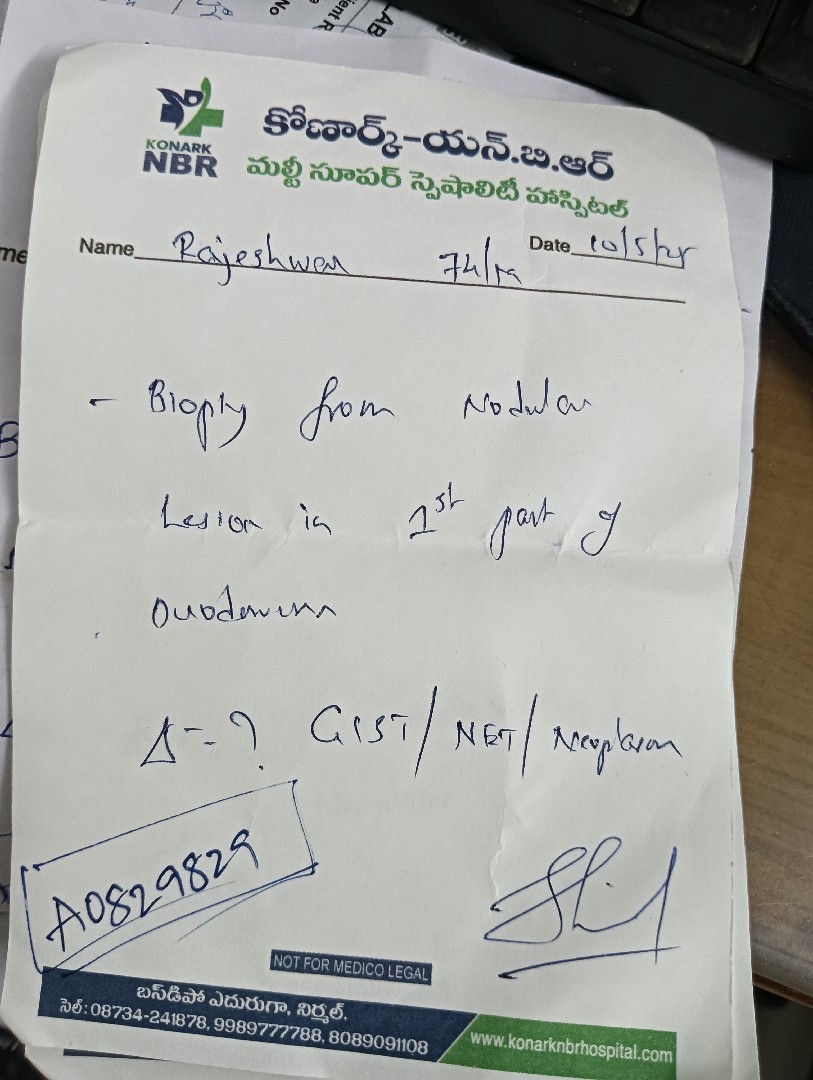 ient R
No
AB
KONARK
NBR
కోణార్క్-యన్.బి.ఆర్
మల్టీ సూపర్ స్పెషాలిటీ హాస్పిటల్
me
Name Rajeshwar 74/M Date 10/5/25
- Biopsy from Nodular
Lesion in 1st part of
Duodenum
Δ-? GIST/ NET/ Neoplasm
A0829829
NOT FOR MEDICO LEGAL
బస్‌డిపో ఎదురుగా, నిర్మల్.
సెల్: 08734-241878, 9989777788, 8089091108
www.konarknbrhospital.com